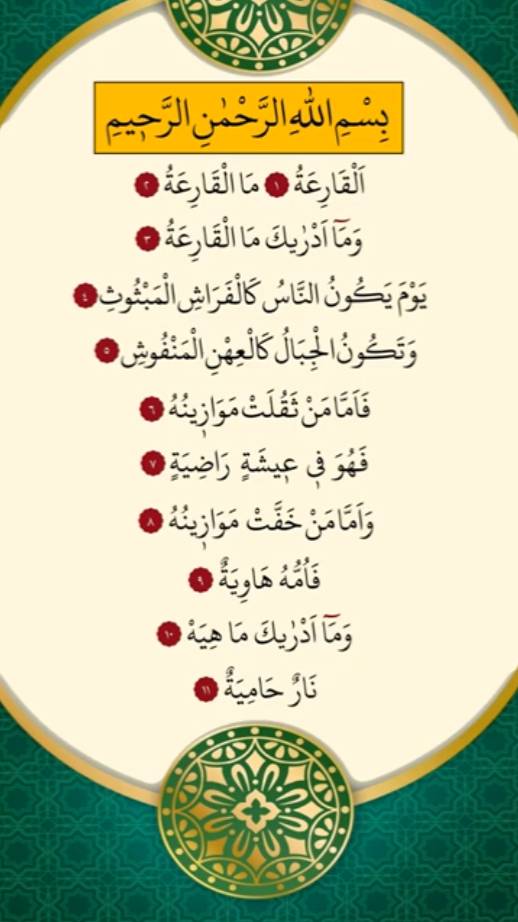 بِسْمِ اللّٰهِ الرَّحْمٰنِ الرَّحٖيمِ
اَلْقَارِعَةُ ١ مَا الْقَارِعَةُ ٢
وَمَٓا اَدْرٰيكَ مَا الْقَارِعَةُ ٣
يَوْمَ يَكُونُ النَّاسُ كَالْفَرَاشِ الْمَبْثُوثِ ٤
وَتَكُونُ الْجِبَالُ كَالْعِهْنِ الْمَنْفُوشِ ٥
فَاَمَّا مَنْ ثَقُلَتْ مَوَازٖينُهُ ٦
فَهُوَ فٖي عٖيشَةٍ رَاضِيَةٍ ٧
وَاَمَّا مَنْ خَفَّتْ مَوَازٖينُهُ ٨
فَاُمُّهُ هَاوِيَةٌ ٩
وَمَٓا اَدْرٰيكَ مَا هِيَهْ ١٠
نَارٌ حَامِيَةٌ ١١